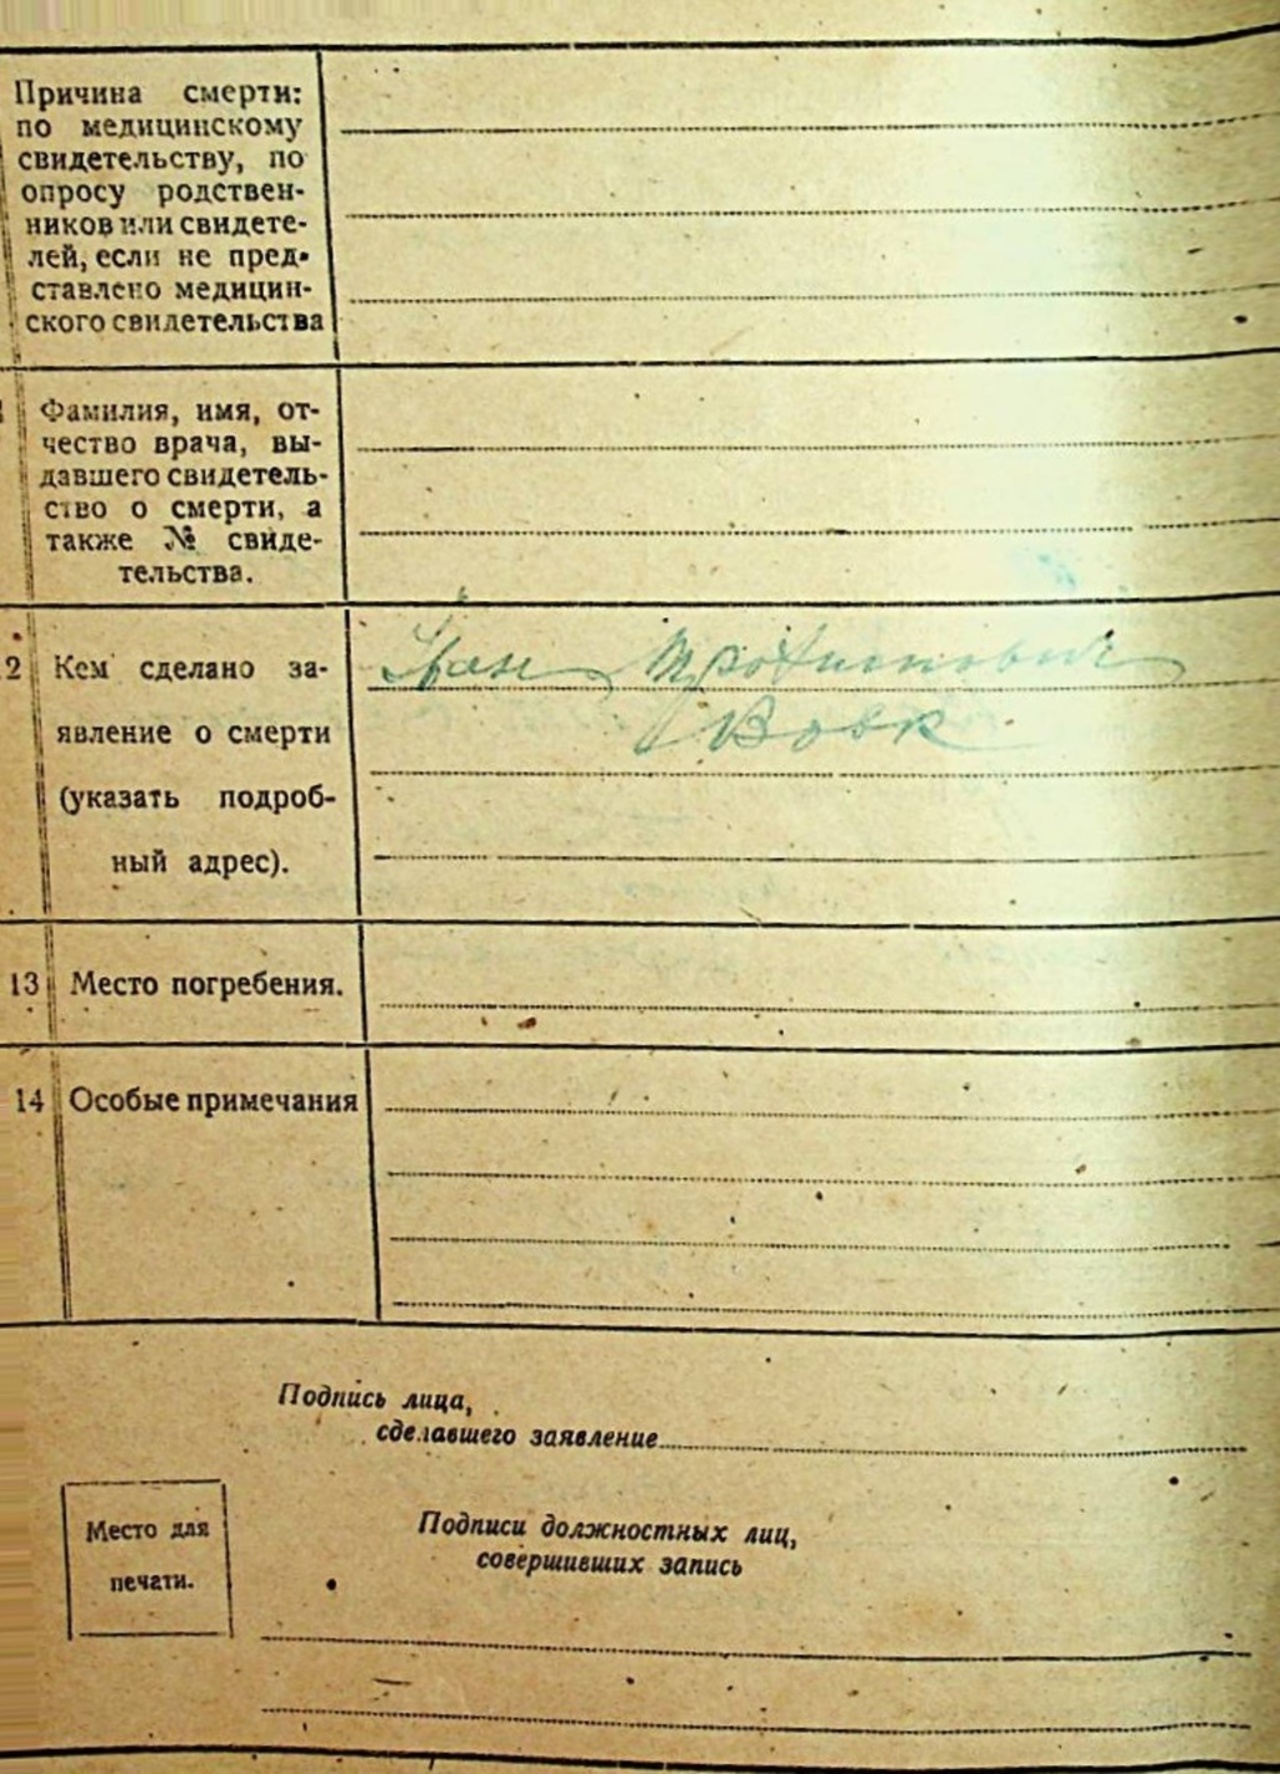 Причина смерти:
по медицинскому
свидетельству, по
опросу родствен-
ников или свидете-
лей, если не пред-
ставлено медицин-
ского свидетельства
Фамилия, имя, от-
чество врача, вы-
давшего свидетель-
ство о смерти, а
также № свиде-
тельства.
2 Кем сделано за-
явление о смерти
(указать подроб-
ный адрес).
Іван
Вовк
13 Место погребения.
14 Особые примечания
Подпись лица,
сделавшего заявление
Место для
печати.
Подписи должностных лиц,
совершивших запись